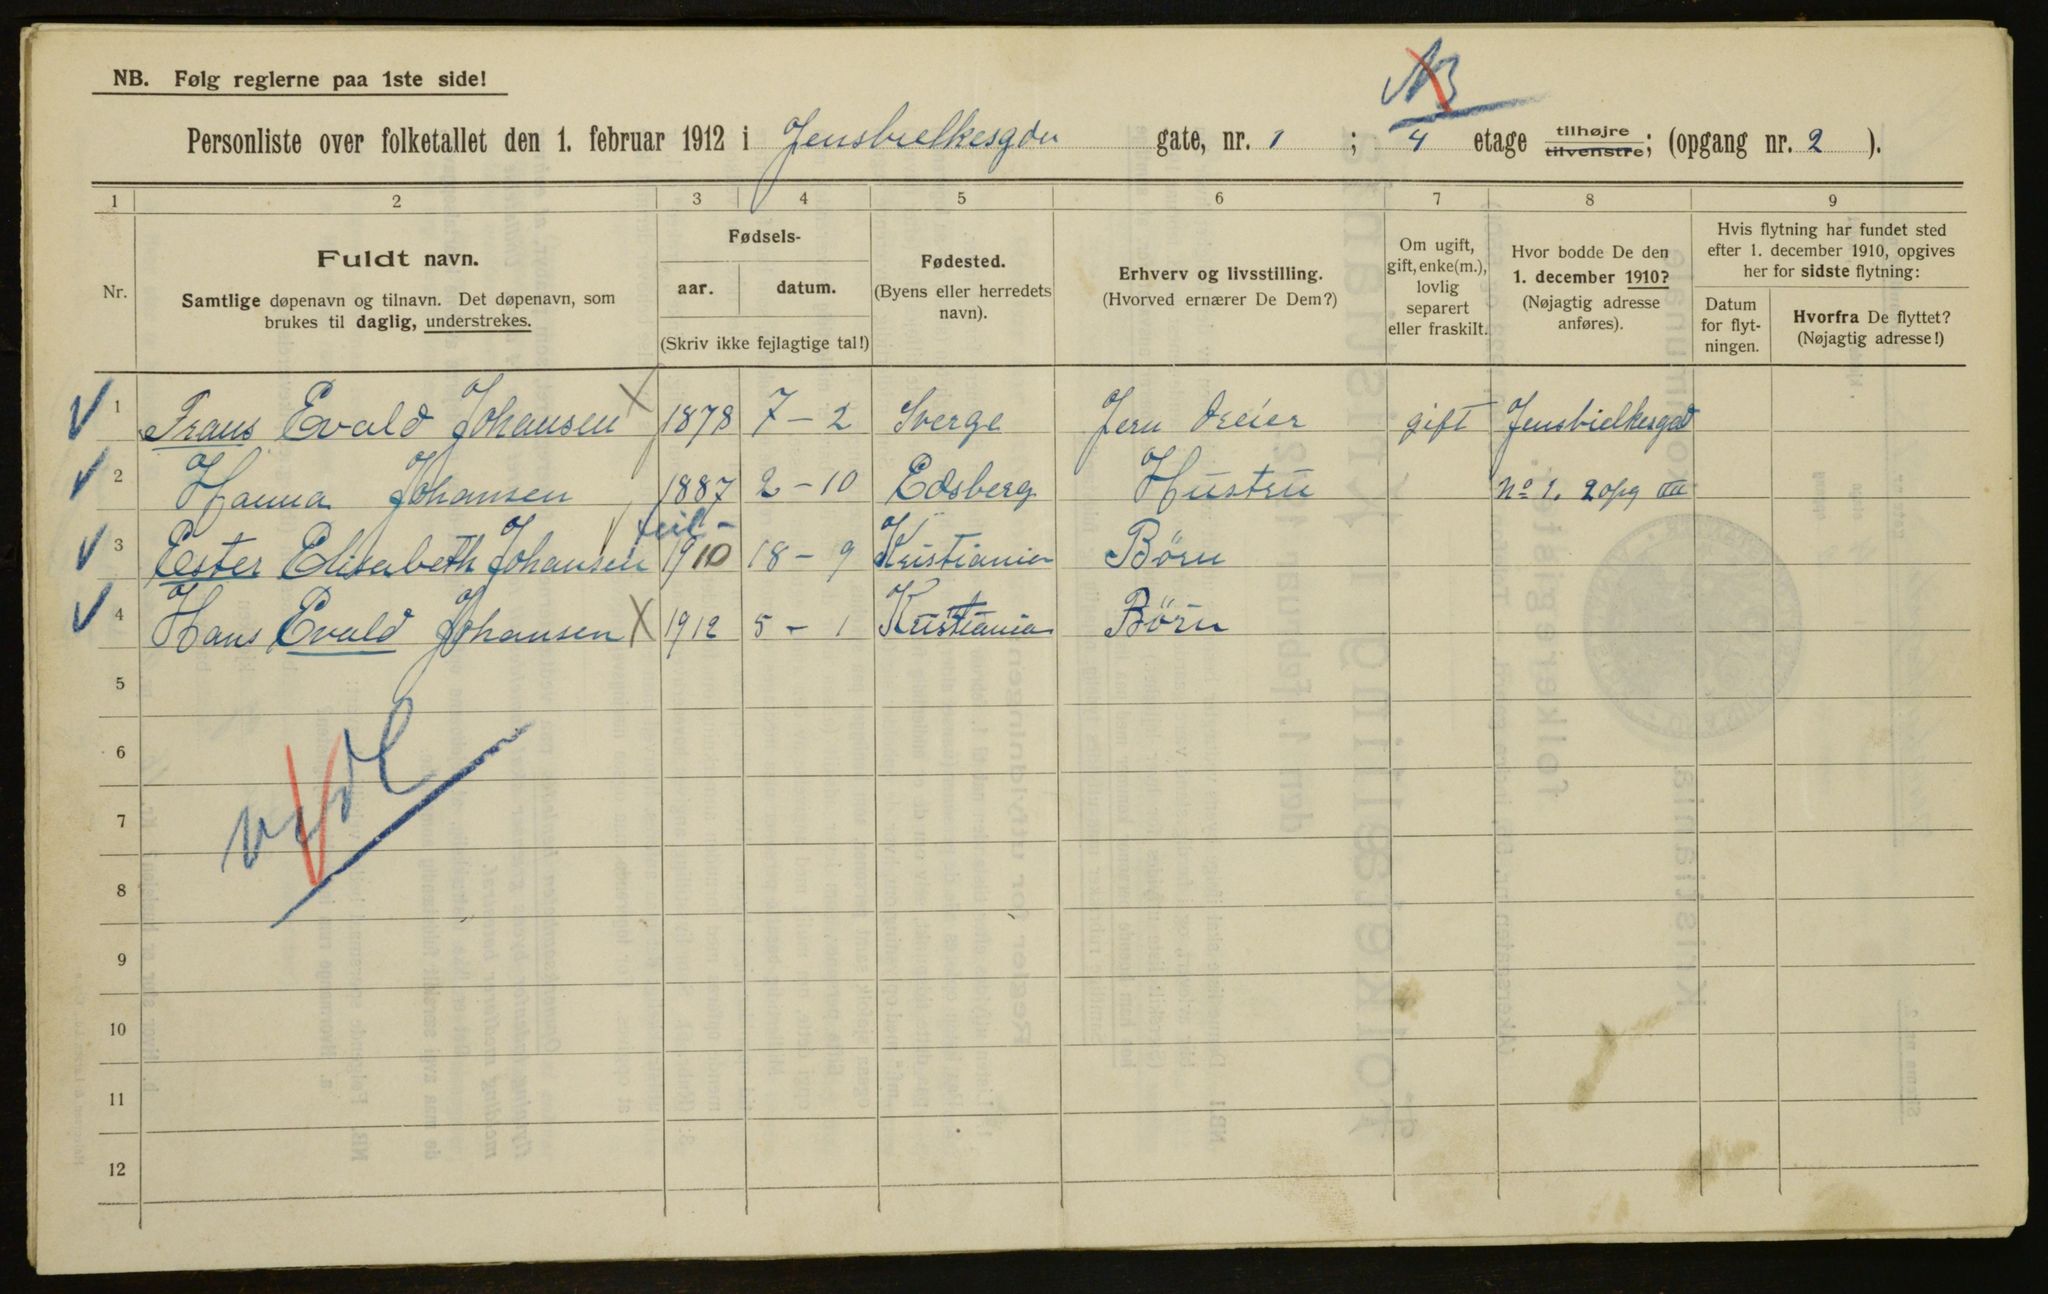 NB. Følg reglerne paa 1ste side!
NB
Personliste over folketallet den 1. februar 1912 i Jensbielkesgdn gate, nr. 1 ; 4 etage tilhøjre tilvenstre; (opgang nr. 2 ).
1 2 3 4 5 6 7 8 9
Nr.
Fuldt navn.
Samtlige døpenavn og tilnavn. Det døpenavn, som
brukes til daglig, understrekes.
Fødsels-
aar. datum.
(Skriv ikke fejlagtige tal!)
Fødested.
(Byens eller herredets
navn).
Erhverv og livsstilling.
(Hvorved ernærer De Dem?)
Om ugift,
gift, enke(m.),
lovlig
separert
eller fraskilt.
Hvor bodde De den
1. december 1910?
(Nøjagtig adresse
anføres).
Hvis flytning har fundet sted
efter 1. december 1910, opgives
her for sidste flytning:
Datum
for flyt-
ningen.
Hvorfra De flyttet?
(Nøjagtig adresse!)
1 Frans Evald Johansen 1878 7 - 2 Sverge Jern dreier gift Jensbielkesgad
2 Hanna Johansen 1887 2 - 10 Edsberg Hustru No 1. 2 opg
feil -
3 Ester Elisabeth Johansen 1910 18 - 9 Kristiania Børn
4 Hans Evald Johansen X 1912 5 - 1 Kristiania Børn
5
6
7
8
9
10
11
12